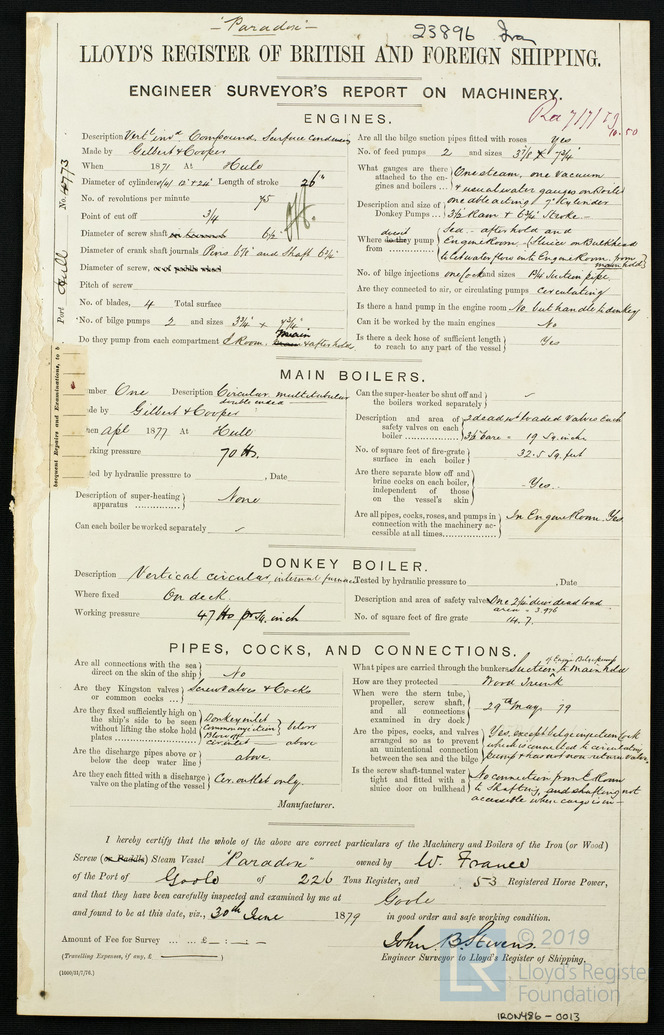 "Paradox"
23896 Iron
LLOYD'S REGISTER OF BRITISH AND FOREIGN SHIPPING.
ENGINEER SURVEYOR'S REPORT ON MACHINERY.
ENGINES.
No. 4773
Port Hull
Description Vertl invd Compound Surface condensing
Made by Gilbert & Cooper
When 1871 At Hull
Diameter of cylinders 12" + 24" Length of stroke 26"
No. of revolutions per minute 75
Point of cut off 3/4
Diameter of screw shaft 6 1/2
Diameter of crank shaft journals Pins 6 1/2 and Shaft 6 1/2
Diameter of screw,
Pitch of screw
No. of blades, 4 Total surface
No. of bilge pumps 2 and sizes 3 3/4 x 7 3/4
Do they pump from each compartment E Room. main & after hold
Are all the bilge suction pipes fitted with roses Yes
No. of feed pumps 2 and sizes 3 7/8 x 7 3/4
What gauges are there attached to the engines and boilers ... One steam, one Vacuum
& usual water gauges on Boiler
Description and size of Donkey Pumps ... one dble acting 7" Kylinder
3 1/2 Ram & 6 3/4 Stroke
Where do they pump from Sea - after hold and
Engine Room - (Sluice on Bulkhead
to let water flow into Engine Room from
main hold)
No. of bilge injections one Cock and sizes 1 3/4 Suction pipe
Are they connected to air, or circulating pumps circulating
Is there a hand pump in the engine room No but handle to donkey
Can it be worked by the main engines No
Is there a deck hose of sufficient length to reach to any part of the vessel Yes
MAIN BOILERS.
Subsequent Repairs and Examinations, to b
mber One Description Circular multitubular
double ended
de by Gilbert & Cooper
hen Apl 1877 At Hull
rking pressure 70 lbs.
ted by hydraulic pressure to , Date
Description of super-heating apparatus None
Can each boiler be worked separately
Can the super-heater be shut off and the boilers worked separately
Description and area of safety valves on each boiler 2 dead wt loaded Valves Each
3 1/2 bare = 19 Sq. inche
No. of square feet of fire-grate surface in each boiler 32.5 Sq. feet
Are there separate blow off and brine cocks on each boiler, independent of those on the vessel's skin Yes
Are all pipes, cocks, roses, and pumps in connection with the machinery accessible at all times In Engine Room Yes
DONKEY BOILER.
Description Vertical circular, internal furnace
Where fixed On deck.
Working pressure 47 lbs pr Sq. inch
Tested by hydraulic pressure to , Date
Description and area of safety valve One 2 1/4 diar dead load
area = 3.976
No. of square feet of fire grate 14.7.
PIPES, COCKS, AND CONNECTIONS.
Are all connections with the sea direct on the skin of the ship No
Are they Kingston valves or common cocks ... Screw valves & Cocks
Are they fixed sufficiently high on the ship's side to be seen without lifting the stoke hold plates Donkey inlet
Common injection
Blow off
below
Cir outlet above
Are the discharge pipes above or below the deep water line above.
Are they each fitted with a discharge valve on the plating of the vessel Cir. outlet only.
What pipes are carried through the bunkers Suction of Engine Bilge pump to main hold
How are they protected Wood Trunk
When were the stern tube, propeller, screw shaft, and all connections examined in dry dock 29th May 79
Are the pipes, cocks, and valves arranged so as to prevent an unintentional connection between the sea and the bilge Yes, except bilge injection Cock
which is connected to circulating
pump & has not non-return valve.
Is the screw shaft-tunnel water tight and fitted with a sluice door on bulkhead No connection from E Room
to Shafting, and shafting not
accessible when cargo is in
Manufacturer.
I hereby certify that the whole of the above are correct particulars of the Machinery and Boilers of the Iron (or Wood)
Screw (or Paddle) Steam Vessel "Paradox" owned by W. France
of the Port of Goole of 226 Tons Register, and 53 Registered Horse Power,
and that they have been carefully inspected and examined by me at Goole
and found to be at this date, viz., 30th June 1879 in good order and safe working condition.
Amount of Fee for Survey ... ... £ - : - : -
(Travelling Expenses, if any, £ )
John B. Stevens.
Engineer Surveyor to Lloyd's Register of Shipping.
(1000/31/7/76.)
© 2019
LR
Lloyd's Register
Foundation
IRON486-0013